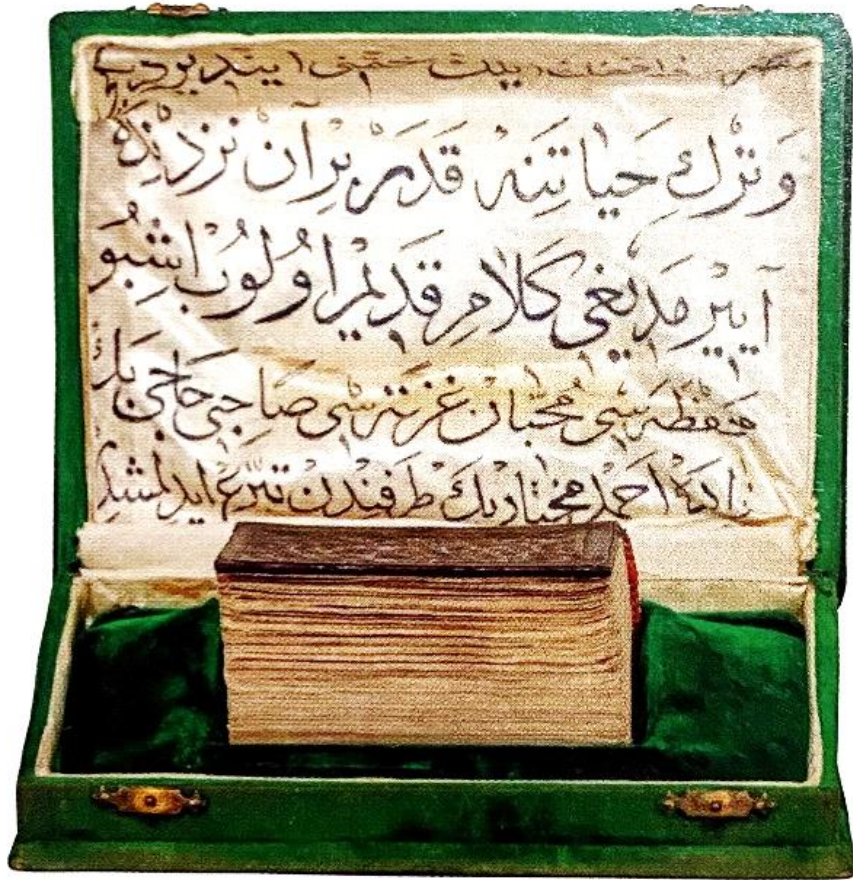 حضرت ايندير درت
وَتَرْكِ حَياتِنَه قَدَر بِرآن نزدِنْدَه
آيير مَديغى كَلامِ قَديم اوُلوُب اشبُو
محفظه سى مُحبّان غزته سى صَاحبى حاجى بك
زاده احمد مختار بك طرفندن تبرّع ايدلمشدر